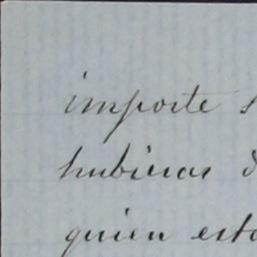 importe
hubieras
quien